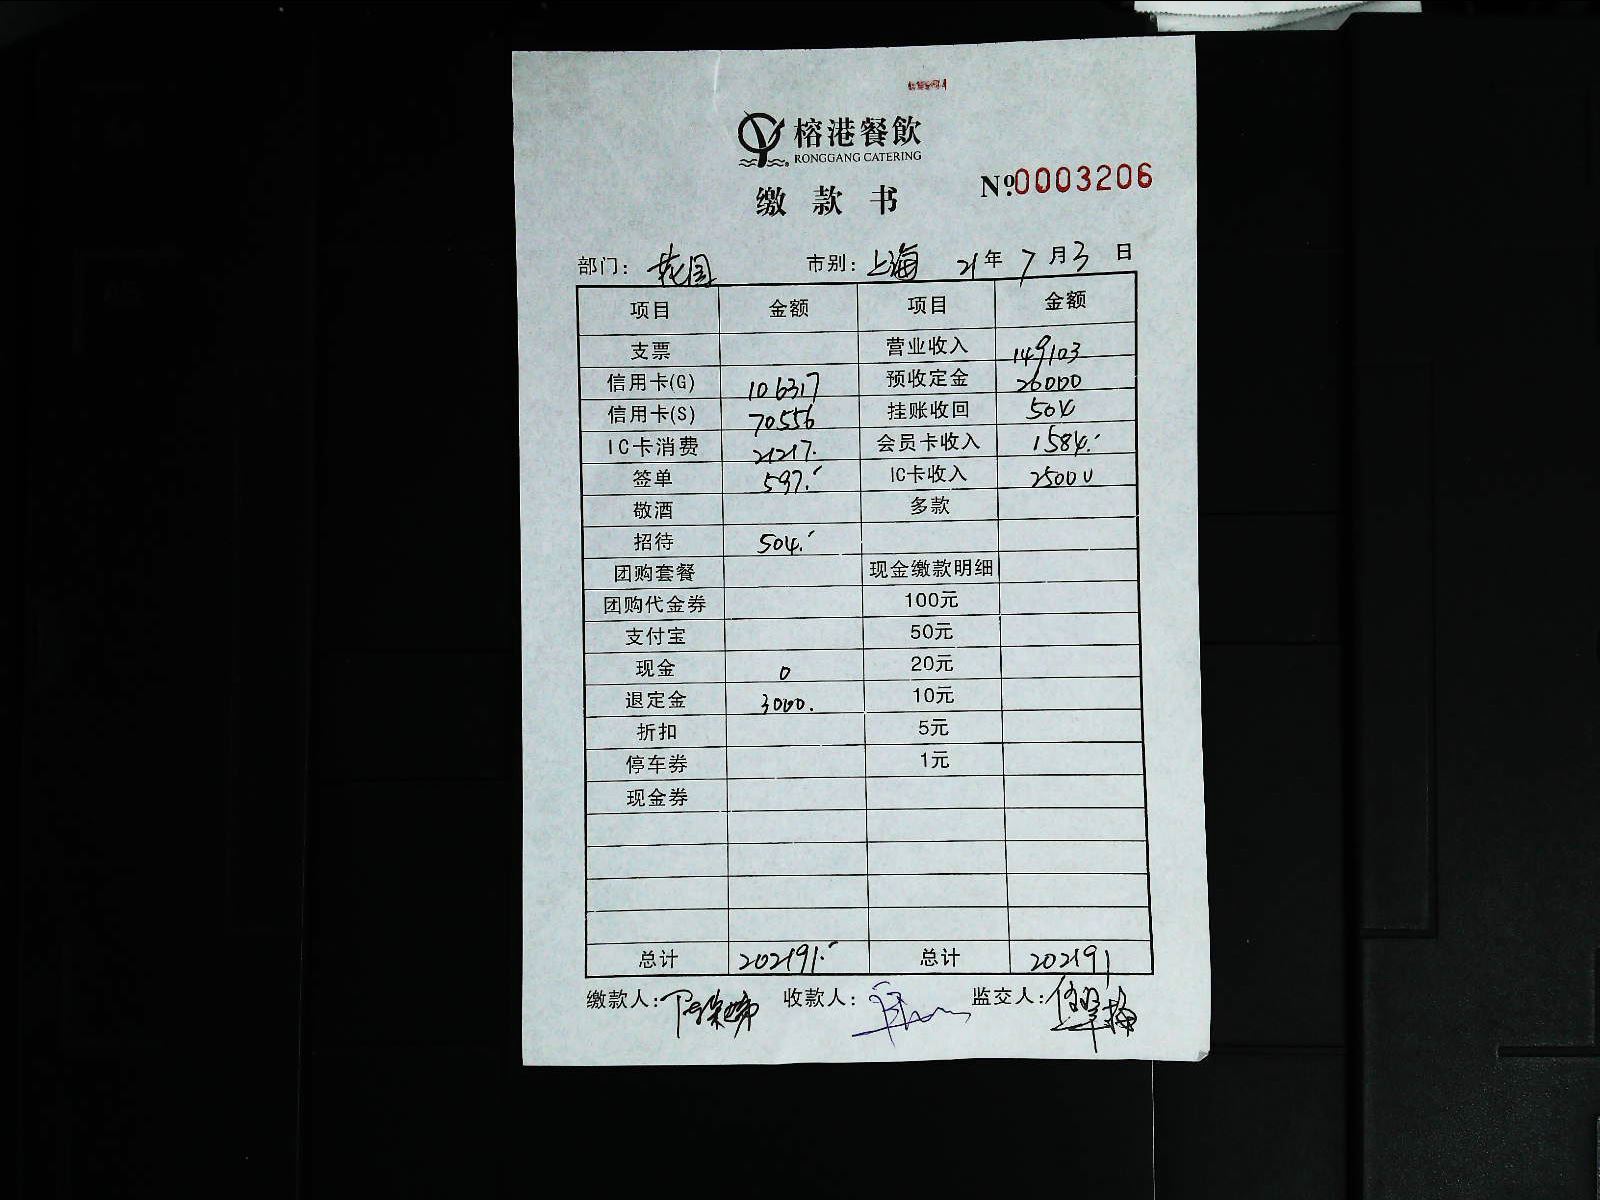 榕港餐飲
RONGGANG CATERING
缴款书
Nº:0003206
部门: 花园 市别: 上海 21年7月3日
项目 金额 项目 金额
支票 营业收入 149103
信用卡(G) 106317 预收定金 26000
信用卡(S) 70556 挂账收回 504
IC卡消费 21217. 会员卡收入 1584.
签单 597. IC卡收入 25000
敬酒 多款
招待 504.
团购套餐 现金缴款明细
团购代金券 100元
支付宝 50元
现金 0 20元
退定金 3000. 10元
折扣 5元
停车券 1元
现金券
总计 202191. 总计 202191
缴款人: 收款人: 监交人: